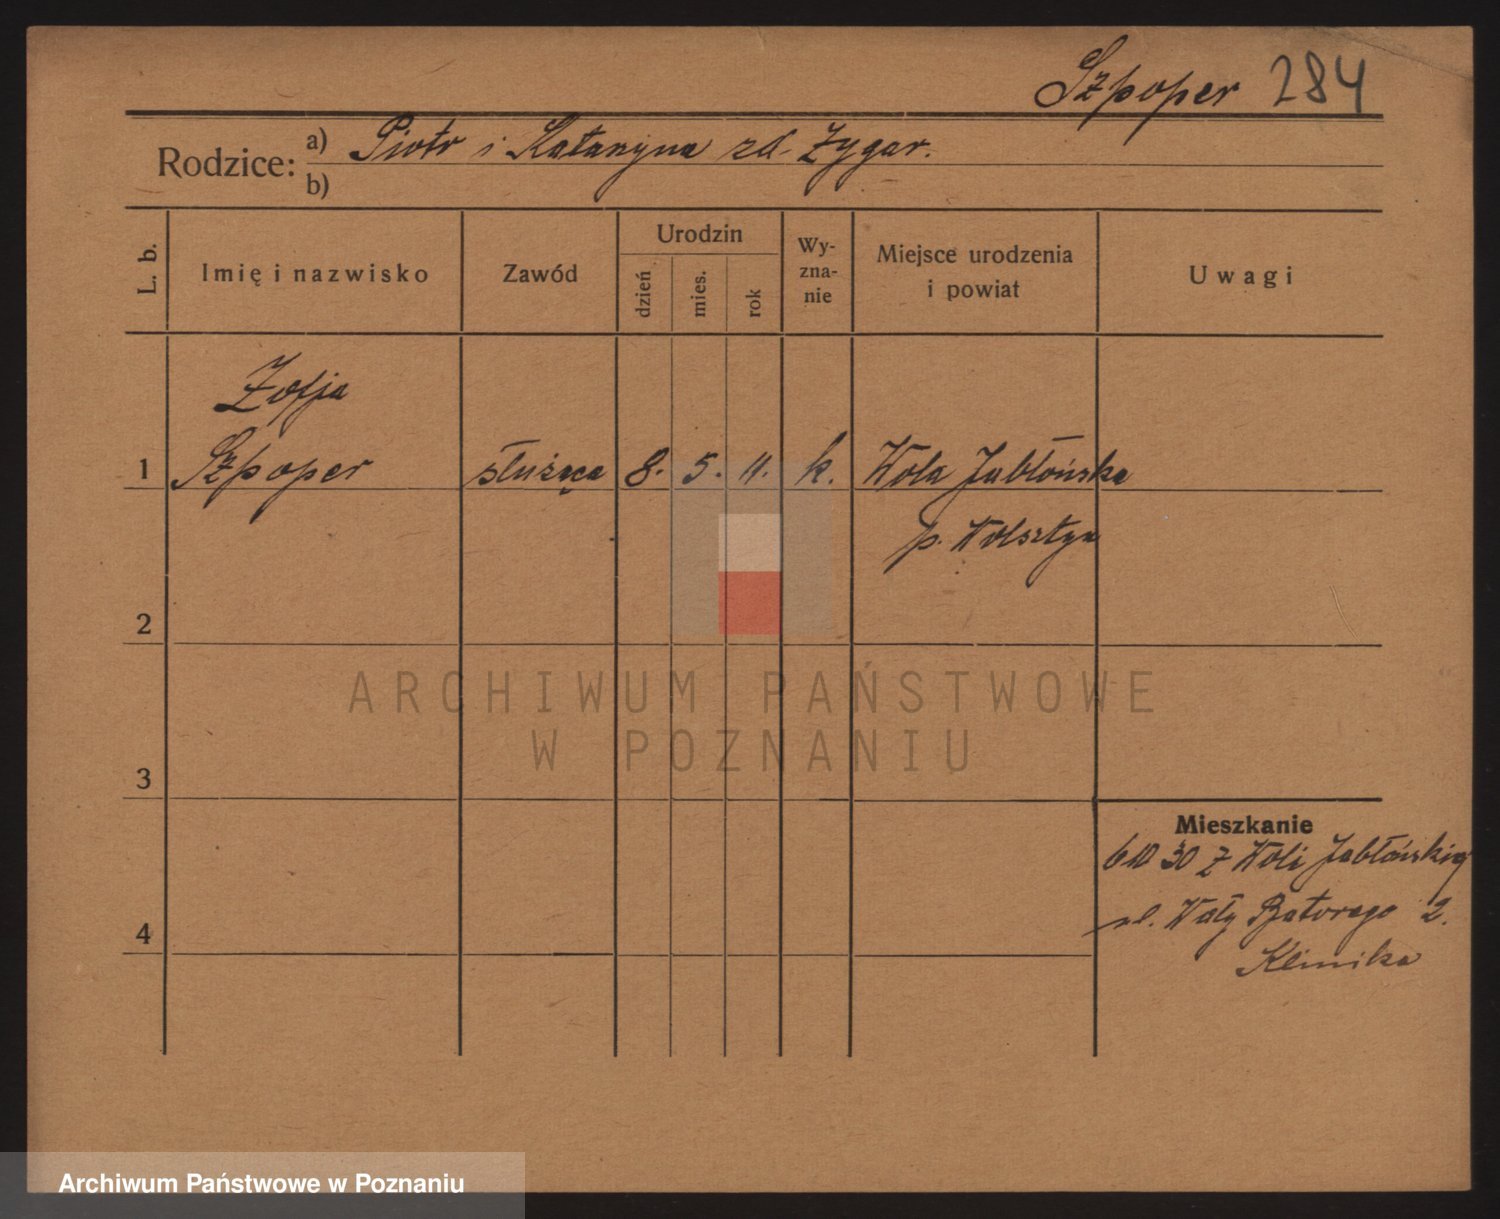 Szpoper 284
Rodzice: a) Piotr i Katarzyna zd. Zygar.
b)
L. b. Imię i nazwisko Zawód Urodzin dzień mies. rok Wy-zna-nie Miejsce urodzenia i powiat Uwagi
Zofja
1 Szpoper służąca 8. 5. 11. k. Wola Jabłońska
p. Wolsztyn
2
ARCHIWUM PAŃSTWOWE
W POZNANIU
3
Mieszkanie
6 10 30 z Woli Jabłońskiej
ul. Wały Batorego 2.
4
Klinika
Archiwum Państwowe w Poznaniu